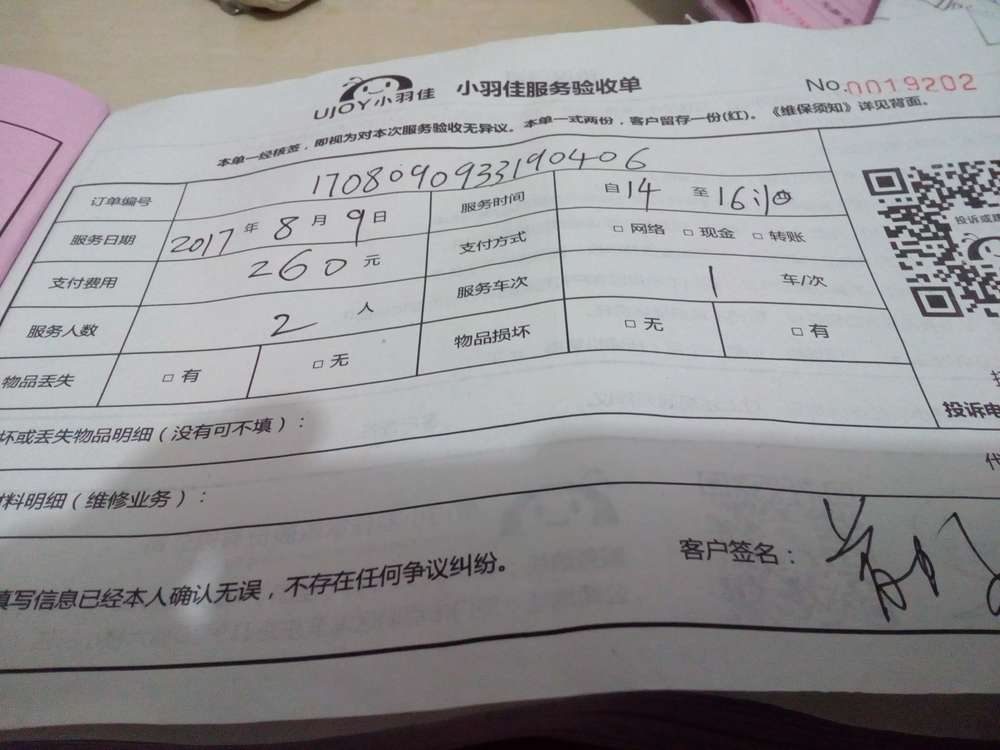 UJOY小羽佳 小羽佳服务验收单 No.0019202
本单一经核签，即视为对本次服务验收无异议。本单一式两份，客户留存一份(红)。《维保须知》详见背面。
订单编号 170809093319 0406
服务日期 2017年8月9日 服务时间 自14至16:10
支付费用 260元 支付方式 □网络 □现金 □转账
服务人数 2人 服务车次 1 车/次
物品丢失 □有 □无 物品损坏 □无 □有
坏或丢失物品明细（没有可不填）：
材料明细（维修业务）：
填写信息已经本人确认无误，不存在任何争议纠纷。 客户签名：
投诉或
投诉电